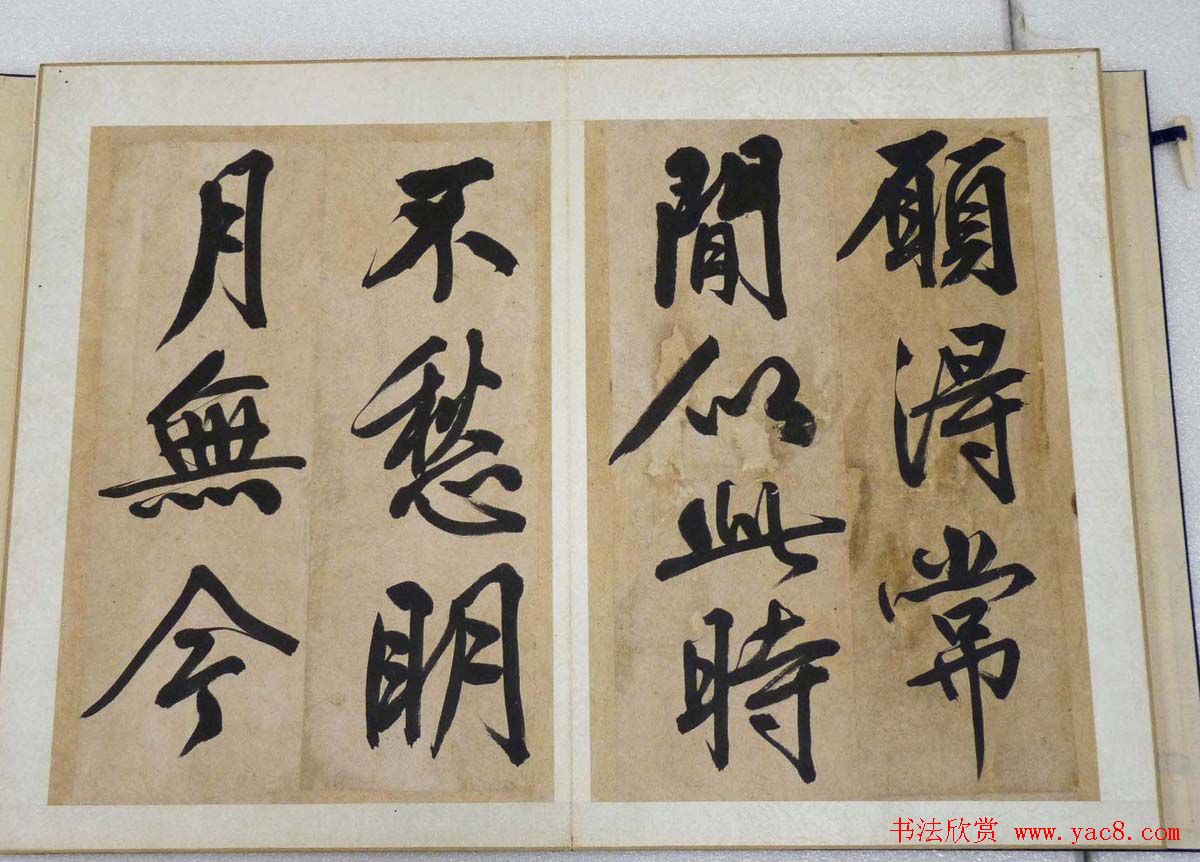 願得常
間似此時
不愁明
月無今
书法欣赏 www.yac8.com